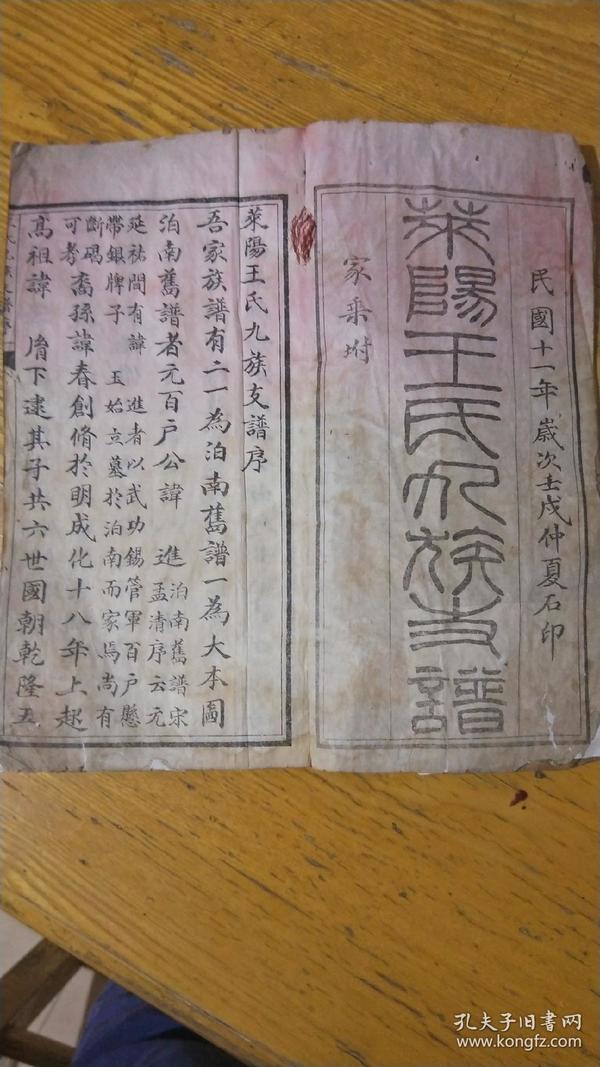 民國十一年歲次壬戌仲夏石印
萊陽王氏九族支譜
家乘坿
萊陽王氏九族支譜序
吾家族譜有二一為泊南舊譜一為大本圖
泊南舊譜者元百戶公諱 進 泊南舊譜宋
孟清序云元
延祐間有諱 進者以武功錫管軍百戶懸
帶銀牌子 玉始立墓於泊南而家焉尚有
斷碣
可考 裔孫諱春創脩於明成化十八年上起
高祖諱 下逮其子共六世國朝乾隆五
孔夫子旧书网
www.kongfz.com